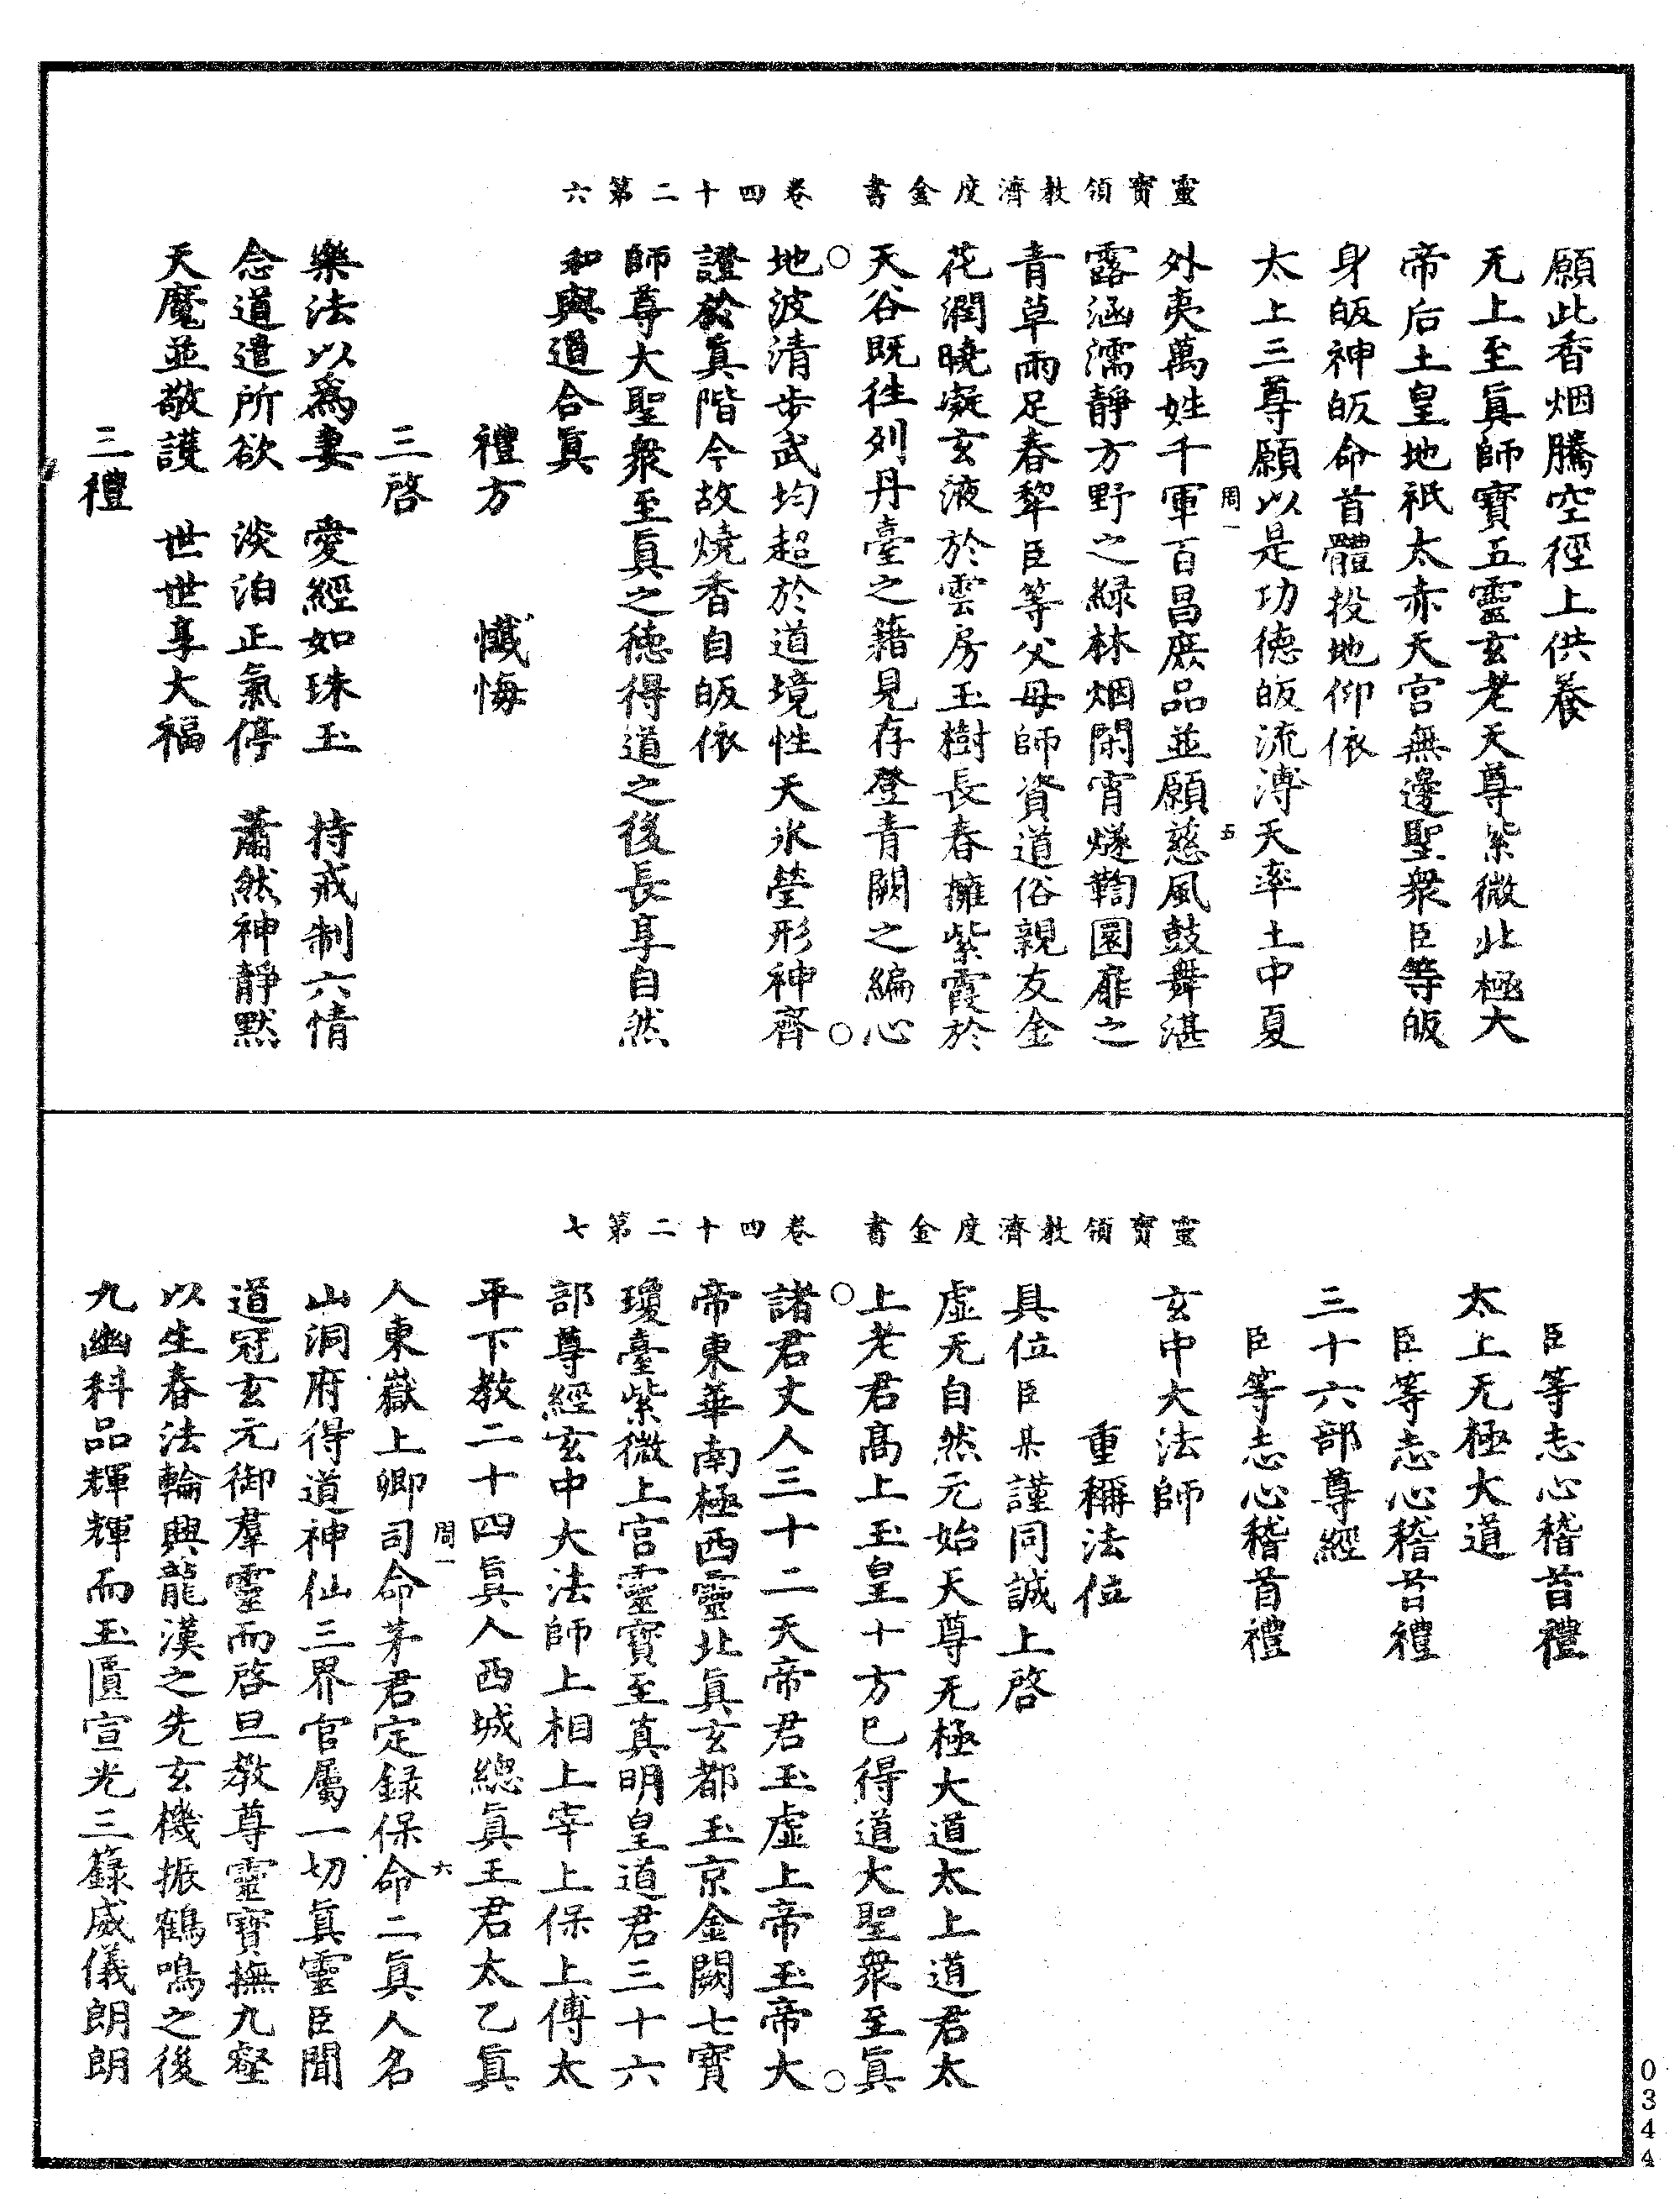 靈寶領教濟度金書　卷四十二第六
願此香烟騰空徑上供養
无上至眞師寶五靈玄老天尊紫微北極大
帝后土皇地祇太赤天宮無邊聖衆臣等皈
身皈神皈命首體投地仰依
太上三尊願以是功德皈流溥天率土中夏
外夷萬姓千軍百昌庶品並願慈風鼓舞湛
露涵濡靜方野之緑林烟閑宵燧鞫園扉之
青草雨足春犂臣等父母師資道俗親友金
花潤曉凝玄液於雲房玉樹長春擁紫霞於
天谷既徃列丹臺之籍見存登青闕之編心
地波清步武均超於道境性天氷瑩形神齊
證於眞階今故燒香自皈依
師尊大聖衆至眞之德得道之後長享自然
和與道合眞
禮方　懺悔
三啓
樂法以爲妻　愛經如珠玉　持戒制六情
念道遣所欲　淡泊正氣停　蕭然神靜默
天魔並敬護　世世享大福
三禮
周一
五
靈寶領教濟度金書　卷四十二第七
臣等志心稽首禮
太上无極大道
臣等志心稽首禮
三十六部尊經
臣等志心稽首禮
玄中大法師
重稱法位
具位臣某謹同誠上啓
虛无自然元始天尊无極大道太上道君太
上老君髙上玉皇十方已得道大聖衆至眞
諸君丈人三十二天帝君玉虛上帝玉帝大
帝東華南極西靈北眞玄都玉京金闕七寶
瓊臺紫微上宮靈寶至真明皇道君三十六
部尊經玄中大法師上相上宰上保上傅太
平下教二十四眞人西城總眞王君太乙眞
人東嶽上卿司命茅君定録保命二眞人名
山洞府得道神仙三界官屬一切眞靈臣聞
道冠玄元御羣靈而啓旦教尊靈寶撫九壑
以生春法輪興龍漢之先玄機振鶴鳴之後
九幽科品輝輝而玉匱宣光三籙威儀朗朗
周一
六
0344